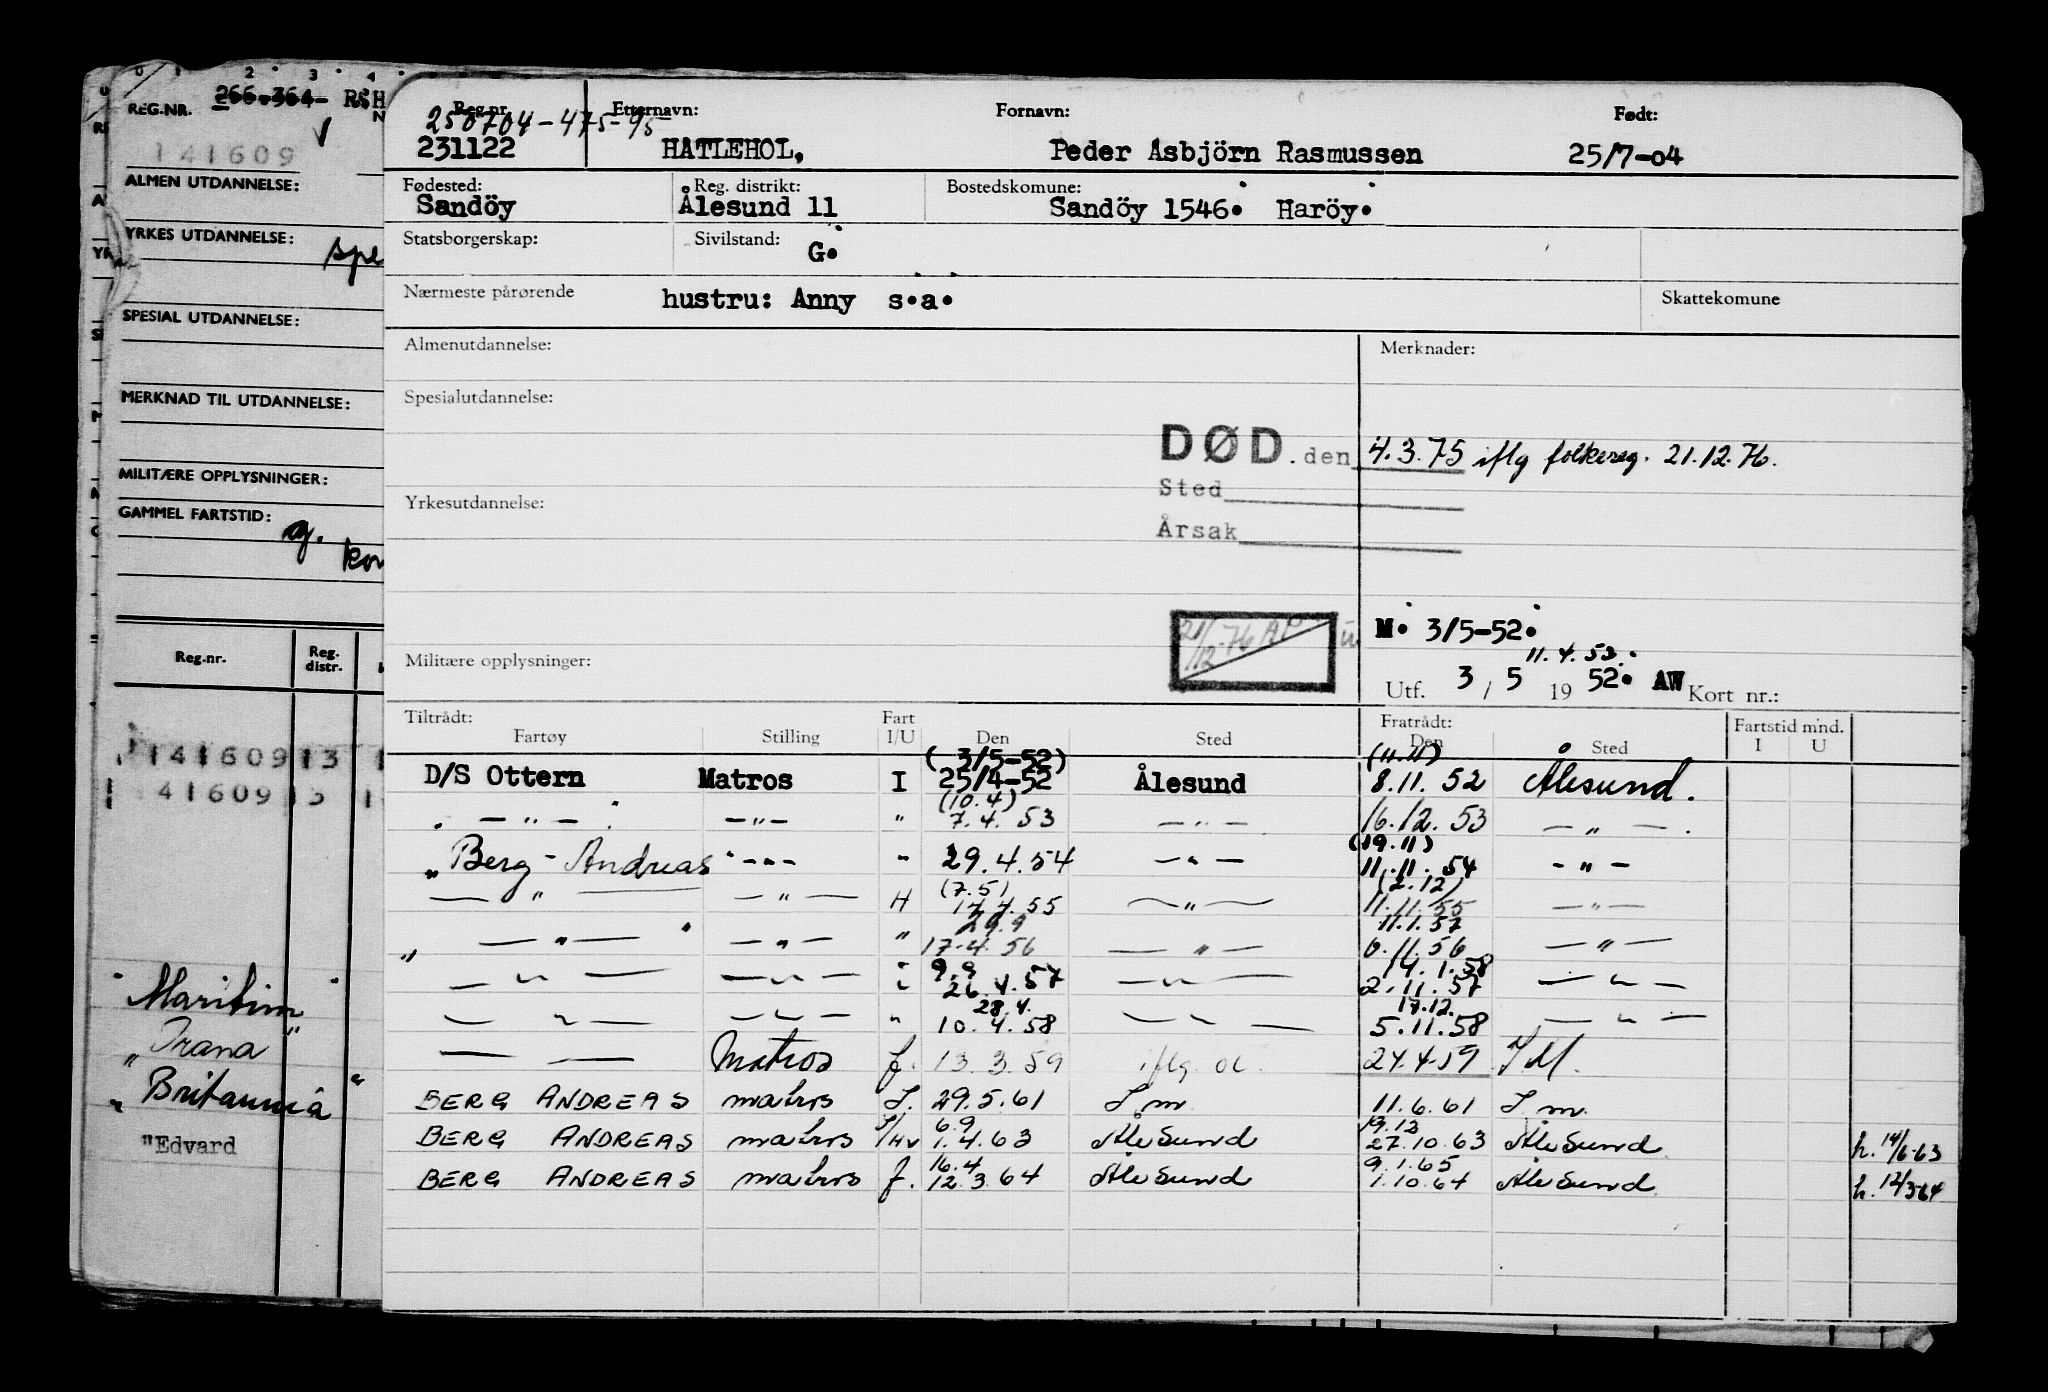 0 1 2 3 4
REG.NR. 266.364- RSH
141609
ALMEN UTDANNELSE:
YRKES UTDANNELSE: spe
SPESIAL UTDANNELSE:
MERKNAD TIL UTDANNELSE:
MILITÆRE OPPLYSNINGER:
GAMMEL FARTSTID:
kor
Reg.nr. Reg. distr.
141609 13 1
41609 13 1
" Maritim "
" Trana "
" Britannia "
"Edvard
Reg.nr. Etternavn: Fornavn: Født:
250704-475-95
231122 HATLEHOL, Peder Asbjörn Rasmussen 25/7-04
Fødested: Reg. distrikt: Bostedskomune:
Sandöy Ålesund 11 Sandöy 1546. Haröy.
Statsborgerskap: Sivilstand: G.
Nærmeste pårørende hustru: Anny s.a. Skattekomune
Almenutdannelse: Merknader:
Spesialutdannelse:
DØD. den 4.3.75 iflg folkereg. 21.12.76.
Sted
Yrkesutdannelse:
Årsak
21/12.76 AP
M. 3/5-52.
11.4.53.
Militære opplysninger: Utf. 3 / 5 19 52. AW Kort nr.:
Tiltrådt: Fart Fratrådt: Fartstid mnd.
Fartøy Stilling I/U Den Sted Den Sted I U
(3/5-52) (11.11)
D/S Ottern Matros I 25/4-52 Ålesund 8.11.52 Ålesund.
(10.4)
— " — — " — " 7.4.53 — " — 16.12.53 — " —.
(19.11)
" Berg-Andreas " — " — " 29.4.54 — " — 11.11.54 — " —
(7.5) (2.12)
— " — — " — H 17.4.55 — " — 11.11.55 — " —
29.9 11.1.57
" — " — " — " — " 17.4.56 — " — 6.11.56 — " —
9.9 14.1.58
— " — — " — " 26.4.57 — " — 2.11.57 — " —
28.4. 17.12.
— " — — " — " 10.4.58 — " — 5.11.58 — " —
— — Matros f. 13.3.59 iflg. ol. 24.4.59 I M.
BERG ANDREAS matros I. 29.5.61 I m 11.6.61 I m.
6.9 19.12
BERG ANDREAS matros I/Hv 1.4.63 Ålesund 27.10.63 Ålesund h. 14/6-63
16.4 9.1.65
BERG ANDREAS matros f. 12.3.64 Ålesund 1.10.64 Ålesund h. 12/3-64